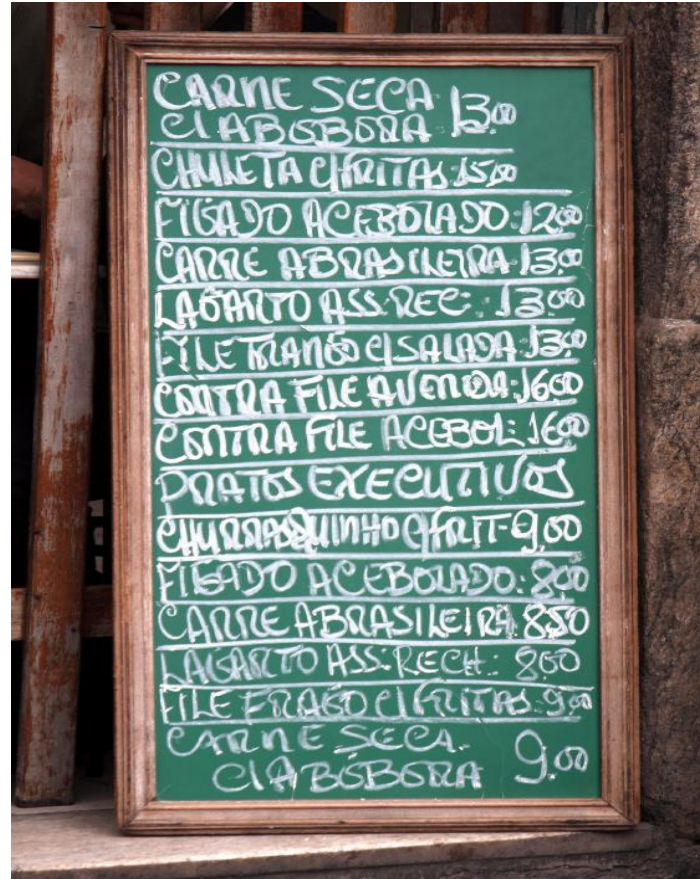 CARNE SECA 13.00
C/ ABÓBORA
CHULETA C/FRITAS: 15,00
FIGADO ACEBOLADO: 12,00
CARRE ABRASILEIRA: 13,00
LAGARTO ASS. REC: 13,00
FILE FRANGO C/ SALADA: 13,00
CONTRA FILE AVENIDA: 16,00
CONTRA FILE ACEBOL: 16,00
PRATOS EXECUTIVOS
CHURRASQUINHO C/FRIT-9,00
FIGADO ACEBOLADO: 8,00
CARRE ABRASILEIRA: 8,50
LAGARTO ASS: RECH: 8,00
FILE FRAGO C/FRITAS: 9,00
CARNE SECA
C/ ABÓBORA 9,00